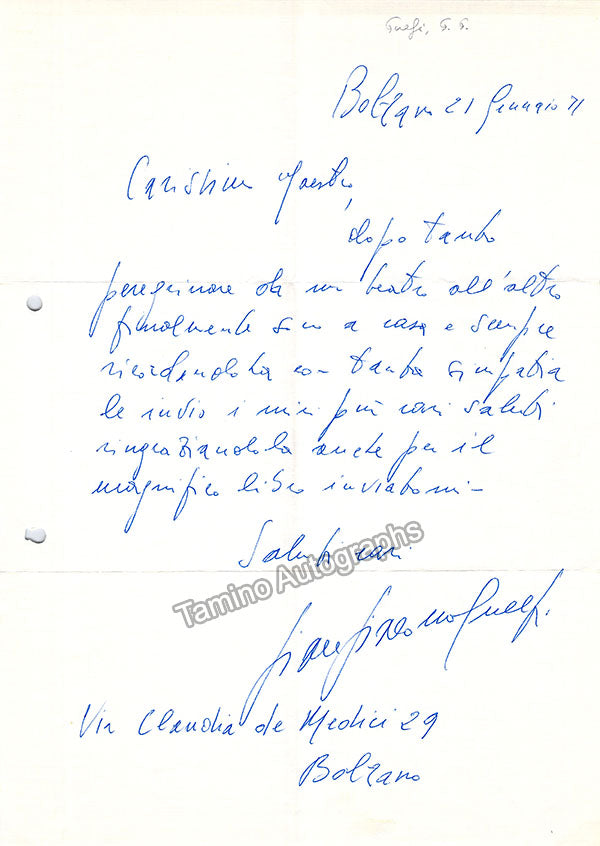 Guelfi, G. G.
Bolzano 21 Gennaio 71
Carissimo Maestro,
dopo tanto
peregrinare da un teatro all'altro
finalmente sono a casa e sempre
ricordandola con tanta simpatia
le invio i miei più cari saluti
ringraziandola anche per il
magnifico libro inviatomi -
Saluti cari
Giangiacomo Guelfi.
Via Claudia de Medici 29
Bolzano
Tamino Autographs